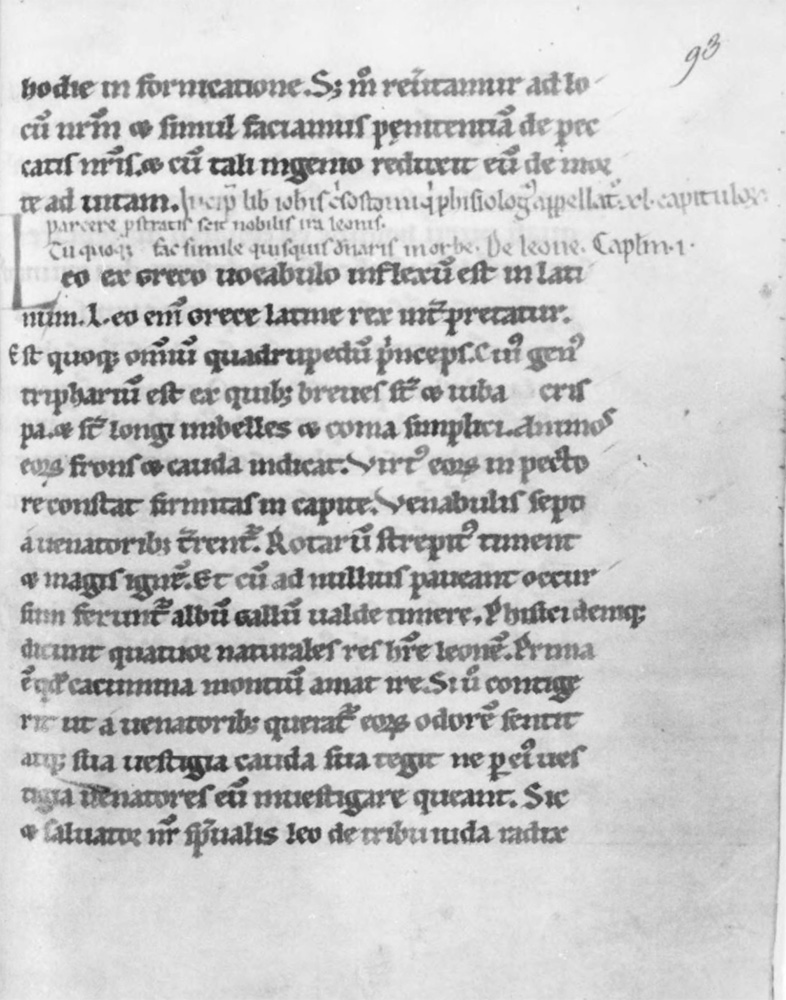 93
hodie in fornicatione. S; m̊ reũtamur ad lo
cũ nr̃m & simul faciamus pęnitentiã de pec
catis nr̃is. & cũ tali ingenio reduxit eũ de mor
te ad uitam. Incip̃ lib iohis c̃sostomi q̇ phisiolog᾽ appellat᾽. xl. capituloꝝ.
parcere ꝓstratis scit nobilis ira leonis.
Tu quoqȝ fac simile quisquis dñaris in orbe. De leone. Capl̃m. i.
Leo ex greco uocabulo inflexũ est in lati
num. Leo eni᷑ grece latine rex int̃pretatur.
Est quoqȝ omi᷑ũ quadrupedũ p̃nceps. Cui᾽ gen᾽
tripharũ est ex quibȝ breues st̃ & iuba cris
pa. & st̃ longi imbelles & coma simplici. Animos
eoꝝ frons & cauda indicat. Virt᾽ eoꝝ in pecto
re constat firmitas in capite. Venabulis septi
a uenatoribȝ t̃rent᷑. Rotarũ strepit᾽ timent
& magis ignẽ. Et cũ ad nullius paueant occur
sum ferunt᷑ albũ gallũ ualde timere. Phisici deniqȝ
dicunt quatuor naturales res hr̃e leonẽ. Prima
ẽ qđ cacumina montiũ amat ire. Si ũ contige
rit ut a uenatoribȝ querat᷑ eoꝝ odorẽ sentit
atqȝ sua uestigia cauda sua tegit ne ꝑ ei᾽ ues
tigia uenatores eũ inuestigare queant. Sic
& saluator nr̃ sp̃ualis leo de tribu iuda radix